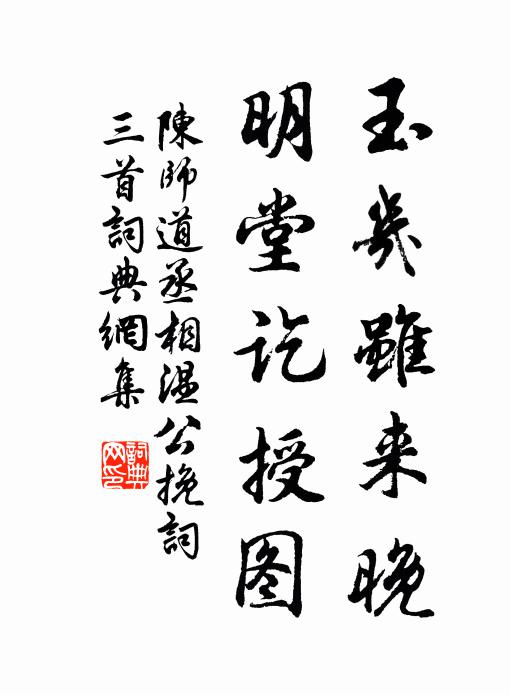 玉幾雖来晚
明堂訖授图
陳師道丞相温公挽詞
三首詞典網集
詞典网印